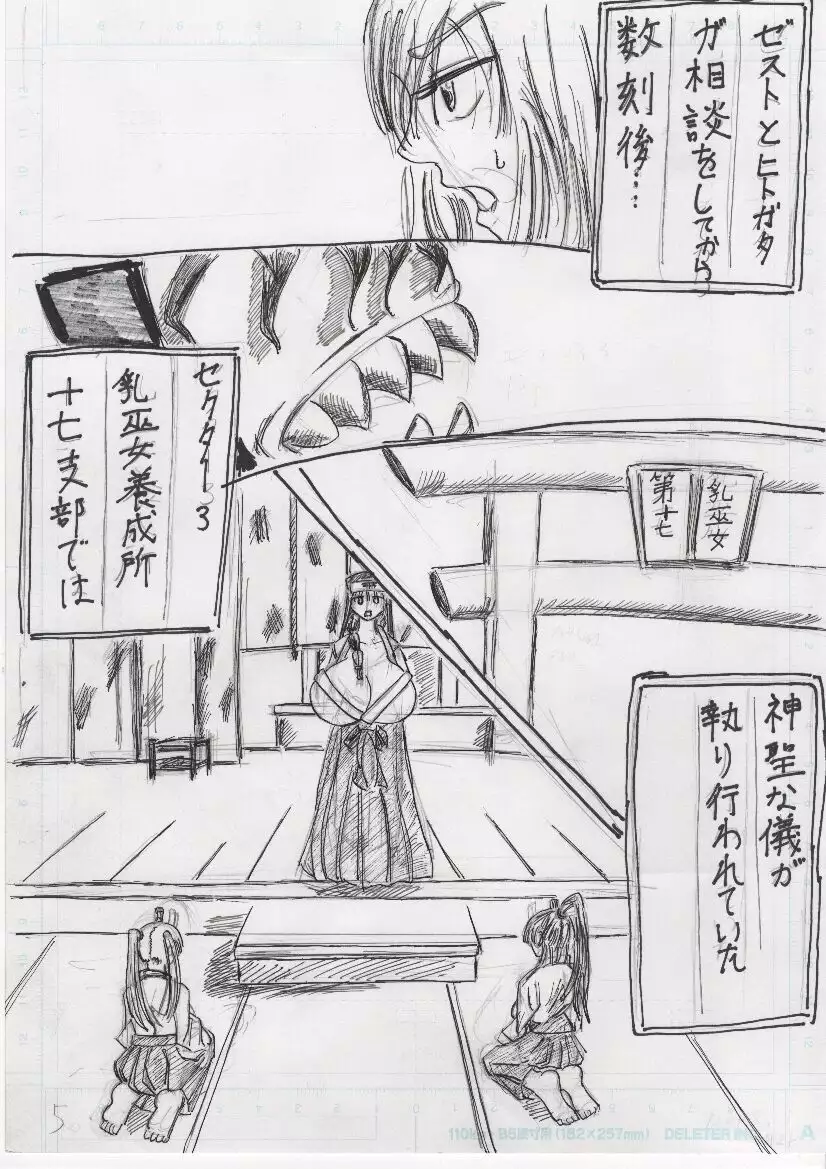 ゼストとヒトガタ
が相談をしてから
数刻後…
セクター3
乳巫女養成所
十七支部では
乳巫女
第十七
神聖な儀が
執り行われていた
5
B5 (182×257mm) DELETER
A